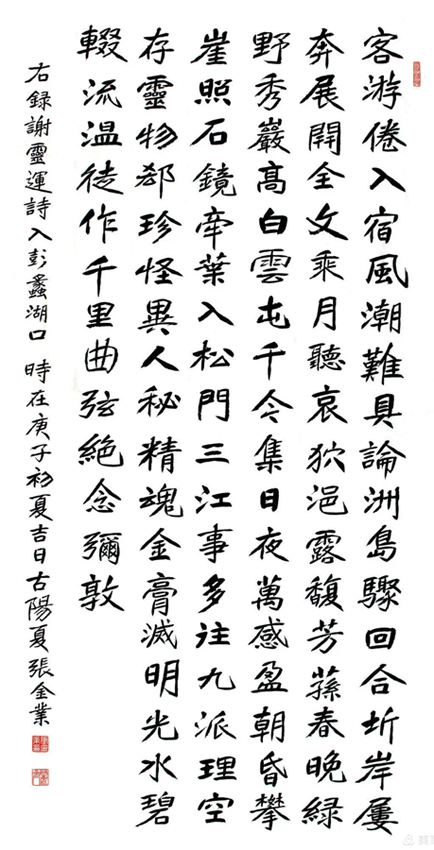 客游倦入宿風潮難具論洲島驟回合圻岸屢
奔展開全文乘月聽哀狖浥露馥芳蓀春晚緑
野秀巖高白雲屯千令集日夜萬感盈朝昏攀
崖照石鏡牽葉入松門三江事多往九派理空
存靈物郄珍怪異人秘精魂金膏滅明光水碧
輟流温徒作千里曲弦絶念彌敦
右録謝靈運詩入彭蠡湖口 時在庚子初夏吉日古陽夏張金業